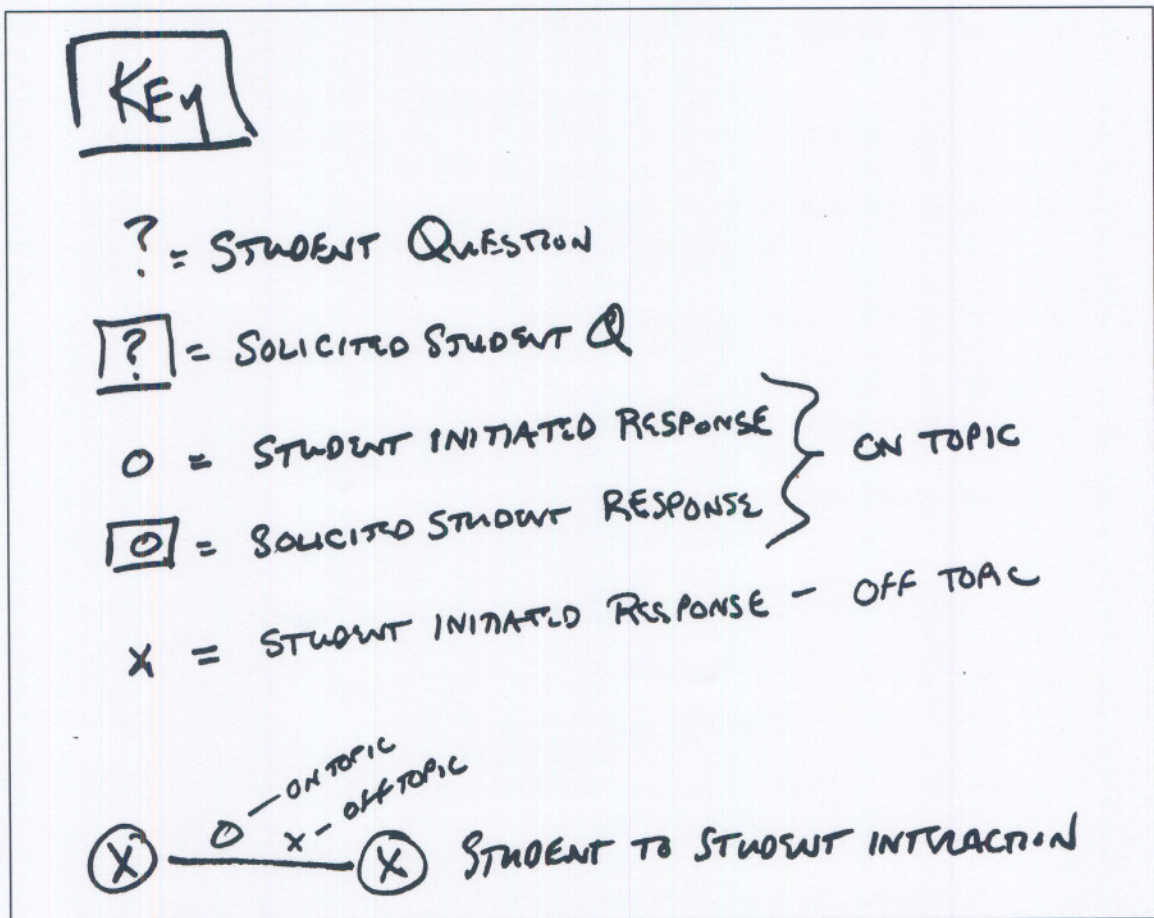 KEY
? = STUDENT QUESTION
? = SOLICITED STUDENT Q
O = STUDENT INITIATED RESPONSE
ON TOPIC
O = SOLICITED STUDENT RESPONSE
X = STUDENT INITIATED RESPONSE - OFF TOPIC
O - ON TOPIC
X - OFF TOPIC
X X STUDENT TO STUDENT INTERACTION